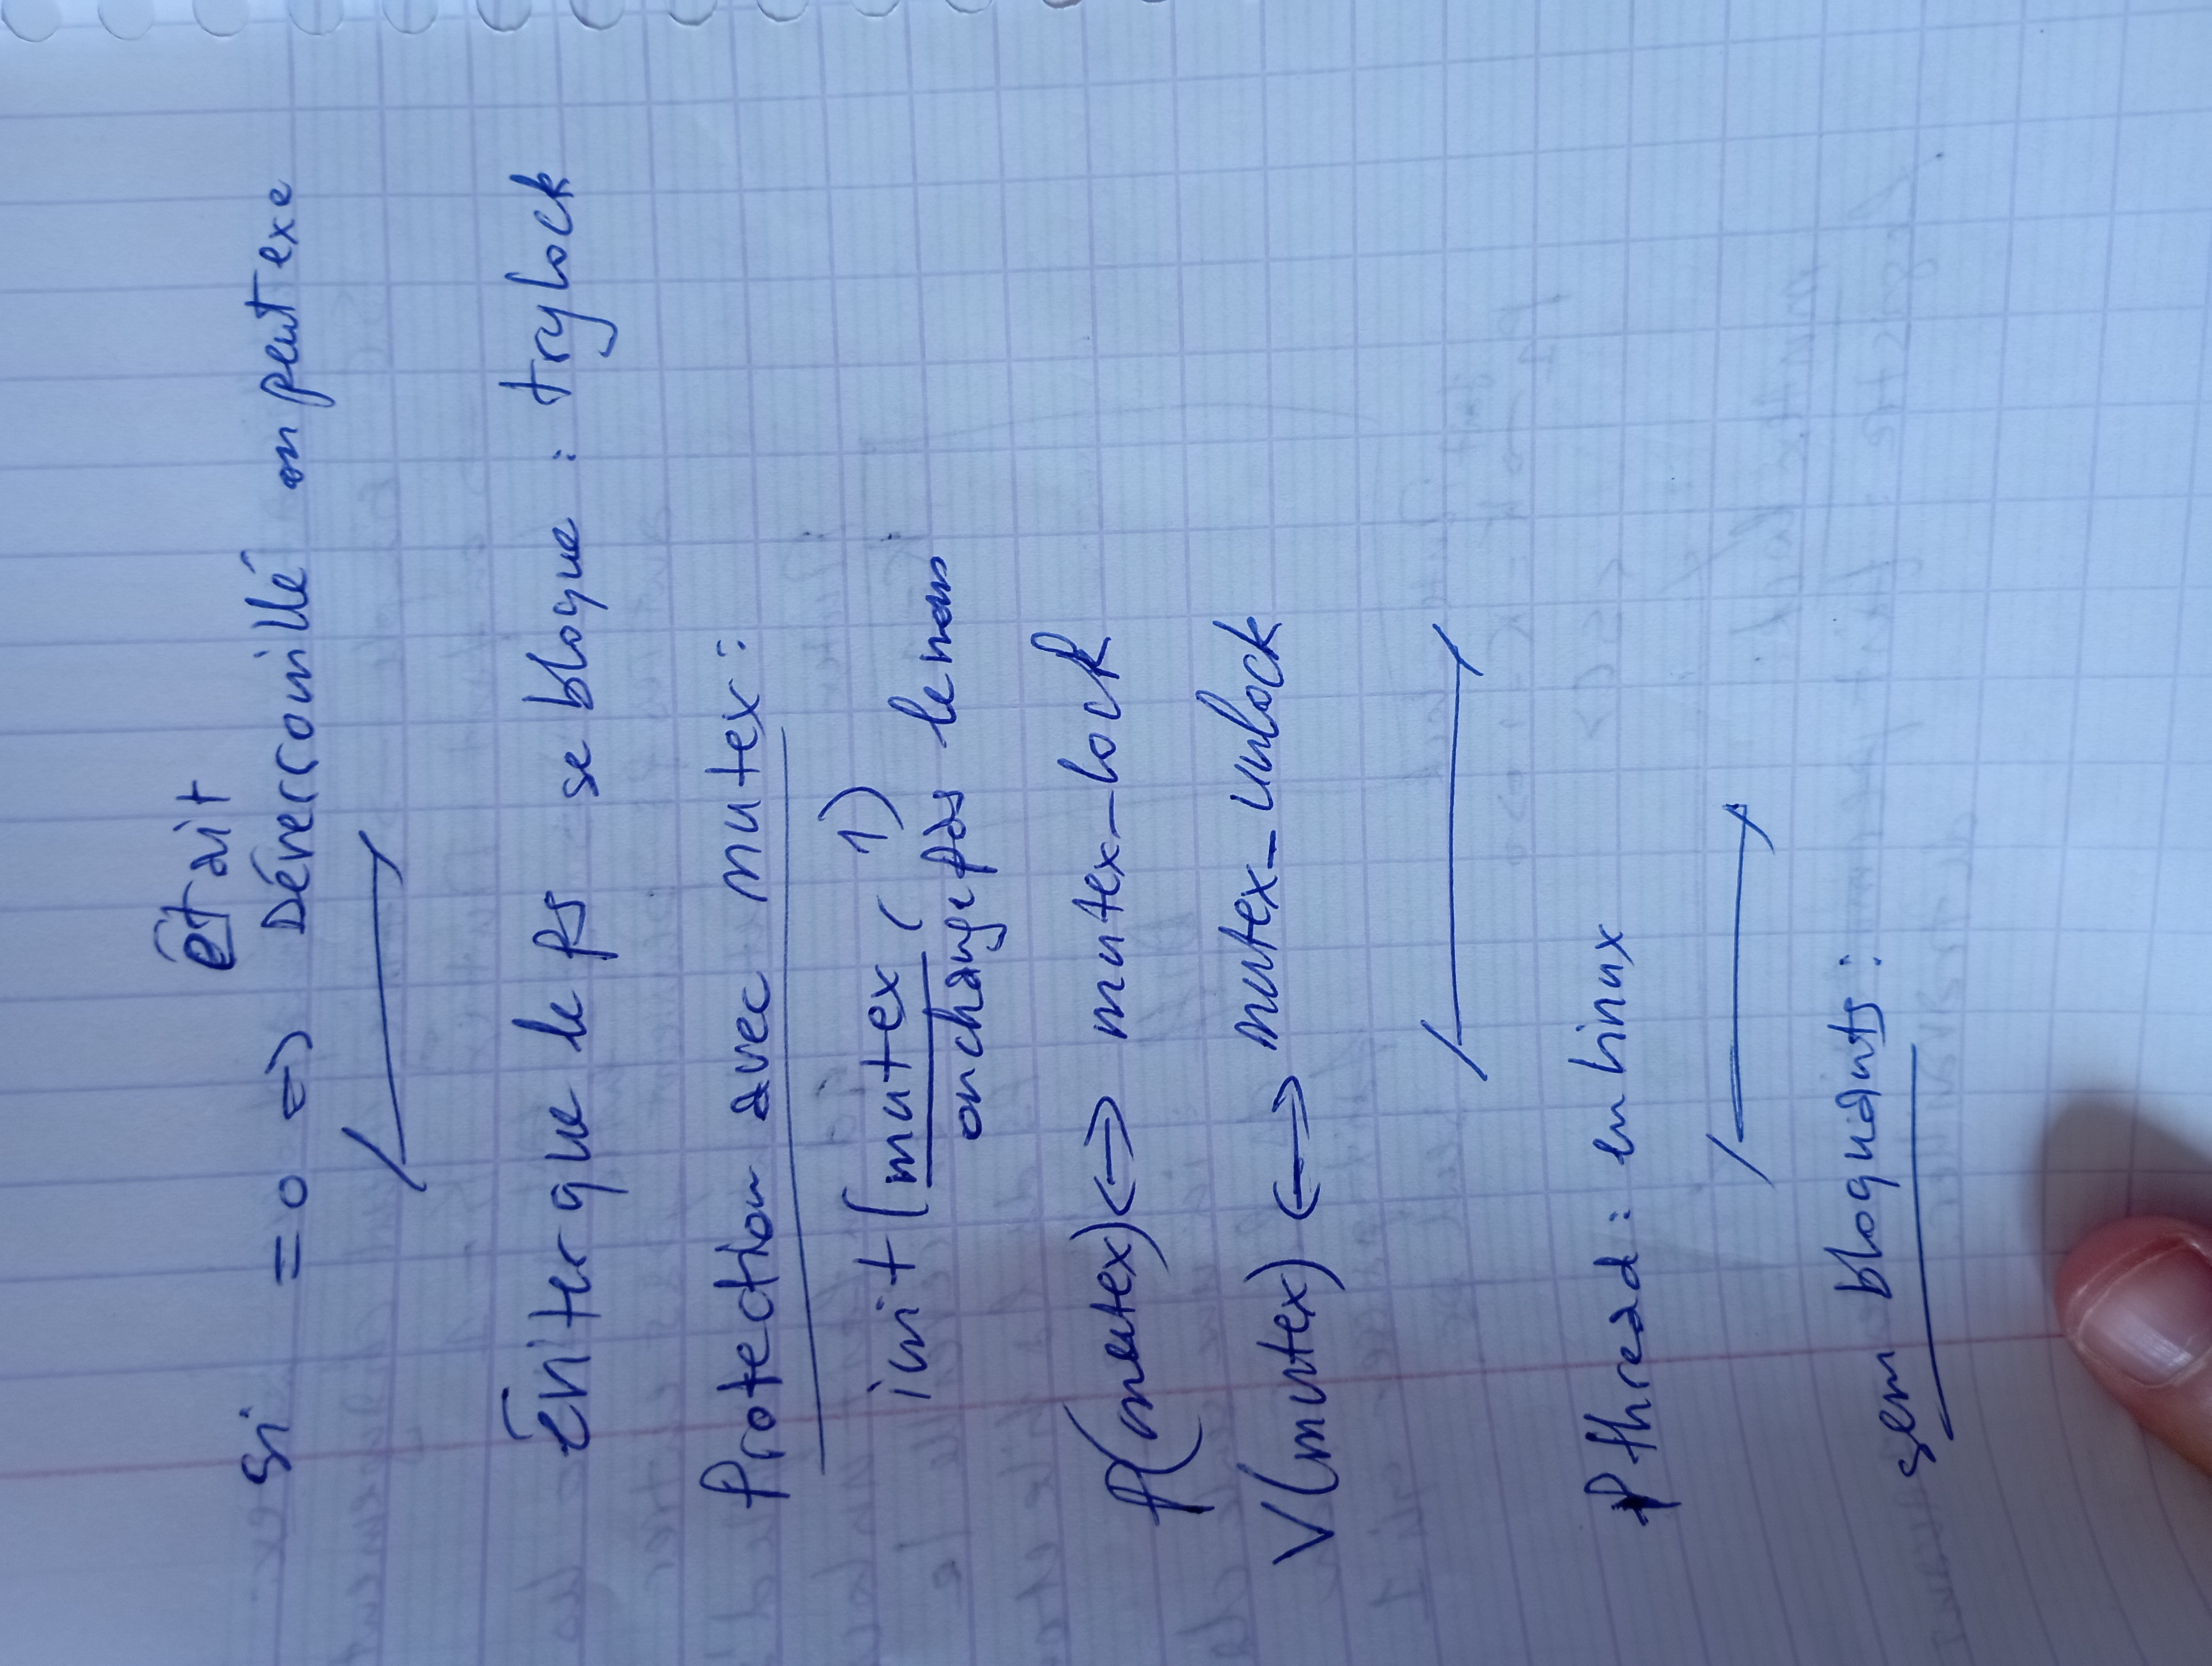 était
si = 0 => Déverrouillé on peut exe
Éviter que le ps se bloque : trylock
Protection avec mutex :
init (mutex, 1)
on change pas le nom
P(mutex) <=> mutex_lock
V(mutex) <=> mutex_unlock
Pthread : en linux
sem bloquants :